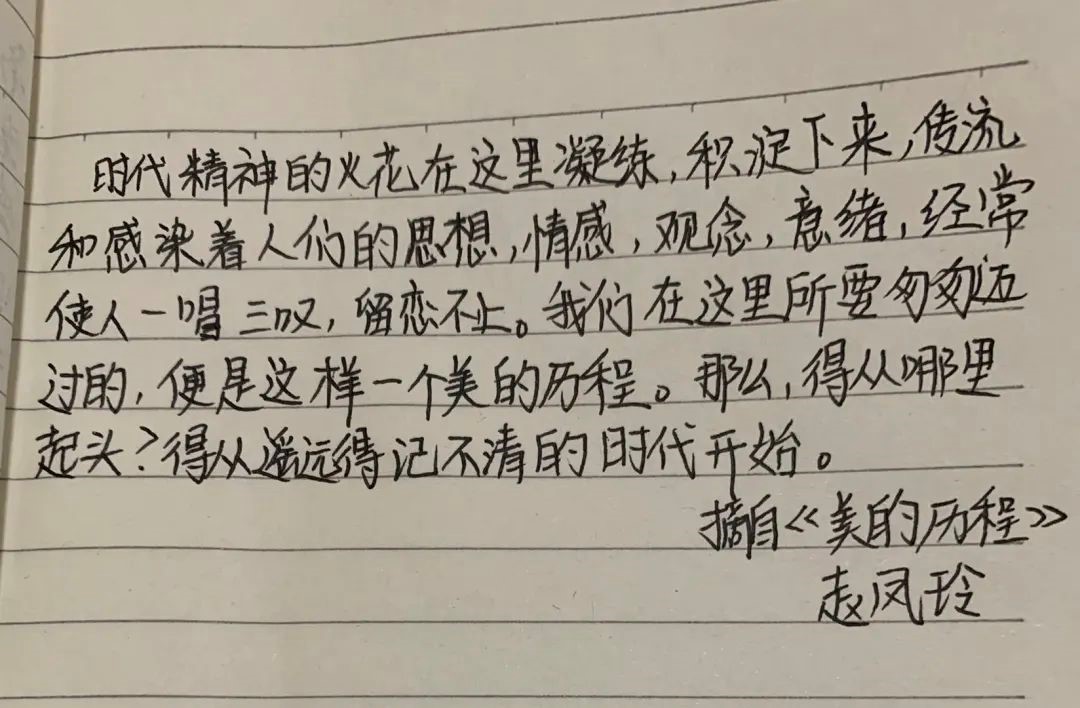 时代精神的火花在这里凝练,积淀下来,传流
和感染着人们的思想,情感,观念,意绪,经常
使人一唱三叹,留恋不止。我们在这里所要匆匆迈
过的,便是这样一个美的历程。那么,得从哪里
起头?得从遥远得记不清的时代开始。
摘自《美的历程》
赵凤玲